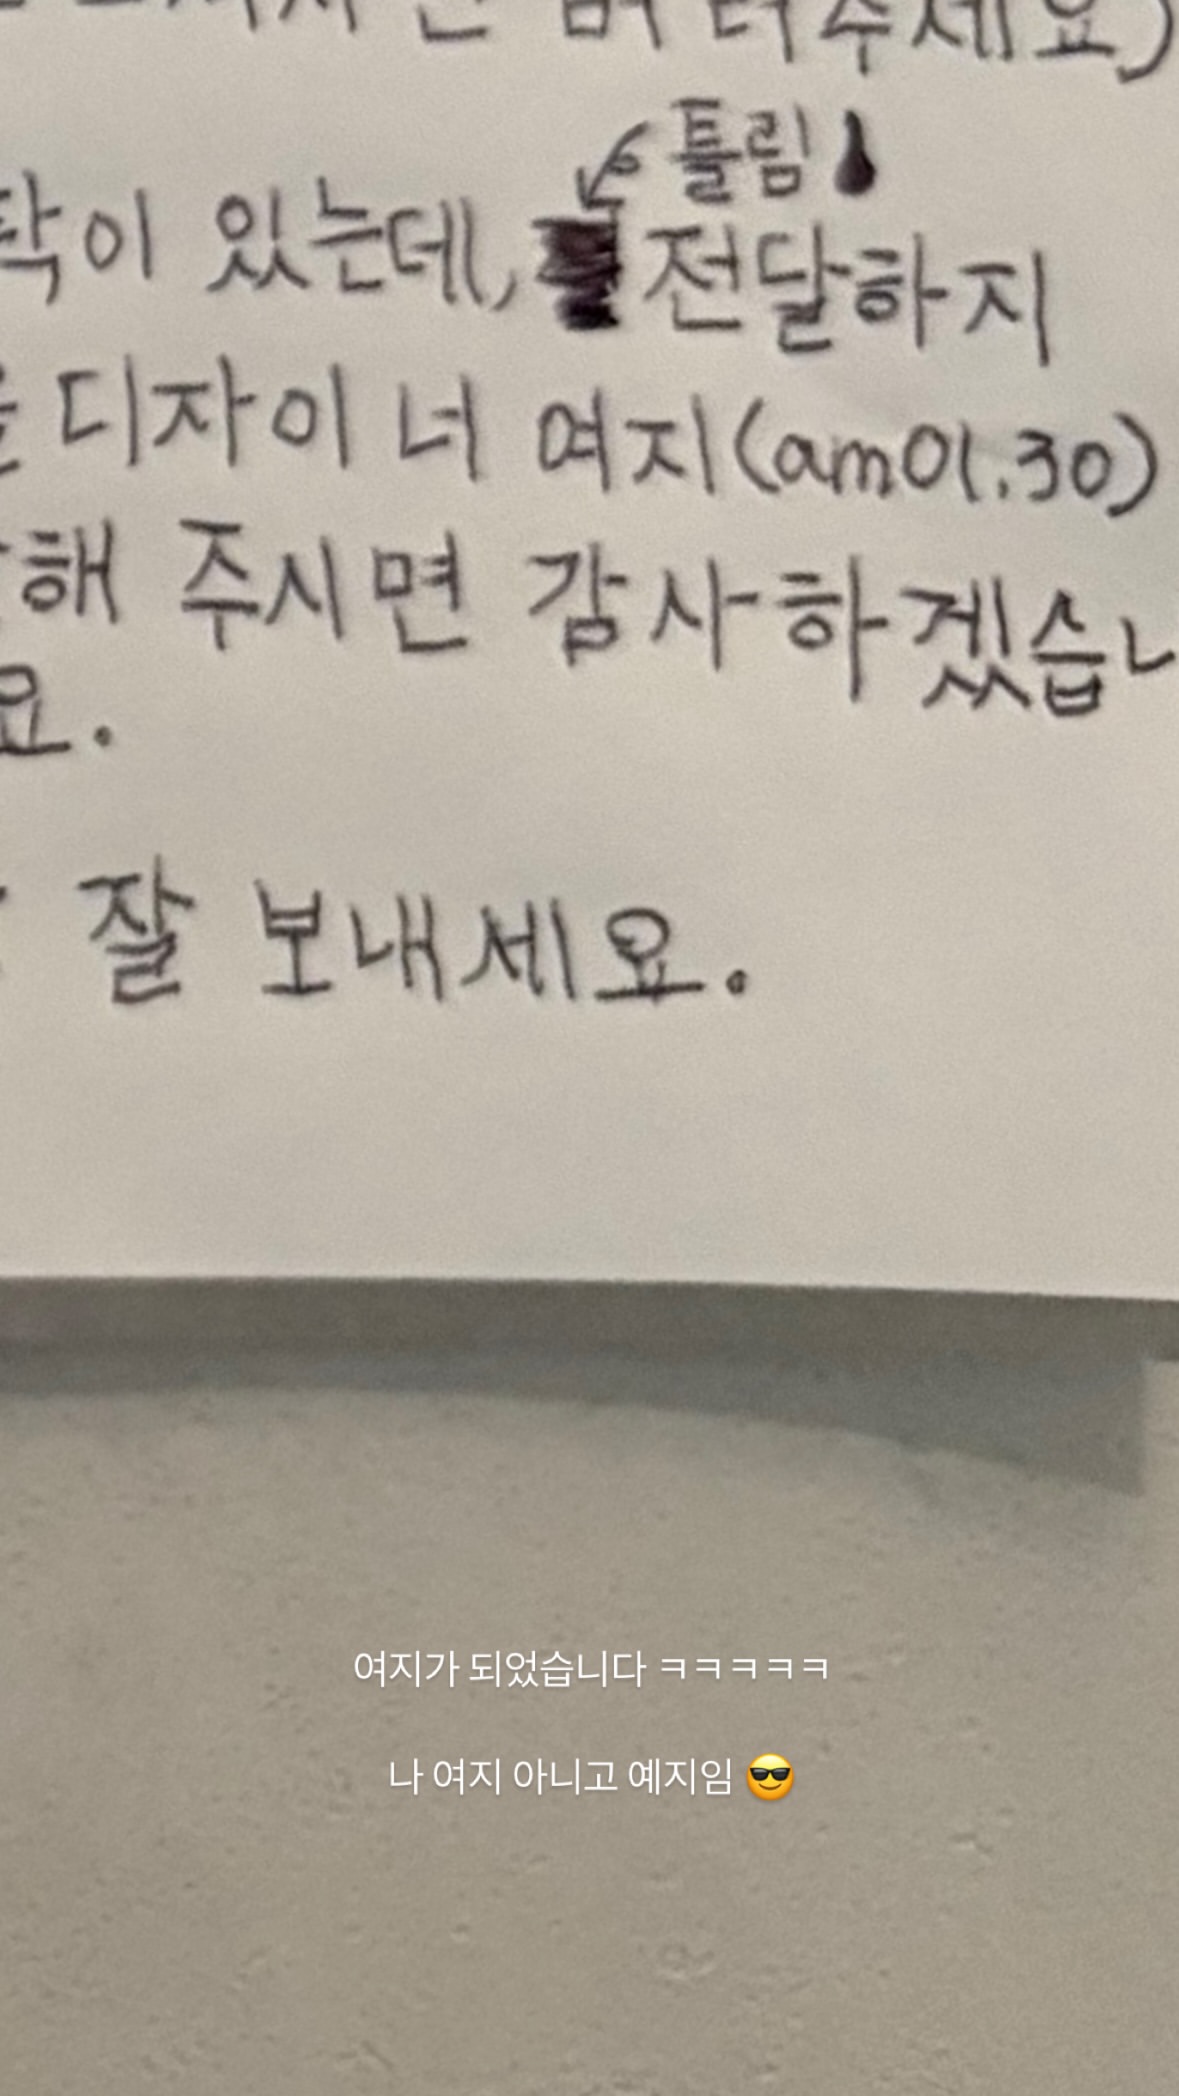 주세요)
틀림!
있는데, 전달하지
디자이너 여지(am01.30)
해 주시면 감사하겠습니
요.
잘 보내세요.
여지가 되었습니다 ㅋㅋㅋㅋㅋ
나 여지 아니고 예지임 😎